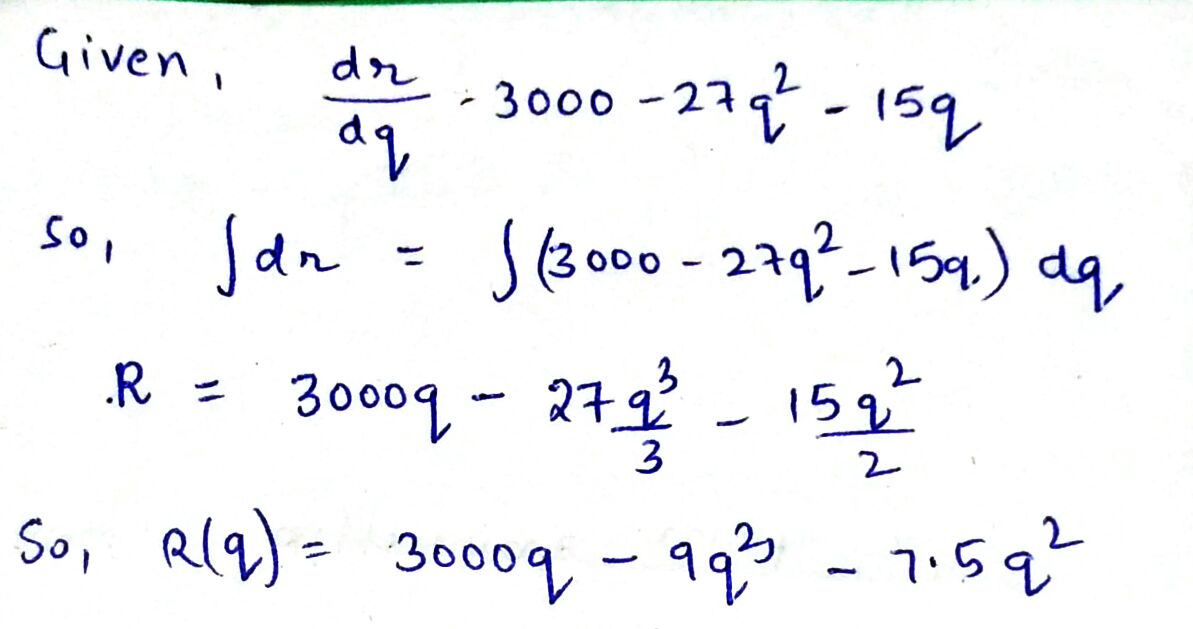 Given, dr/dq - 3000 - 27q² - 15q
So, ∫dr = ∫(3000 - 27q² - 15q.) dq
.R = 3000q - 27q³/3 - 15q²/2
So, R(q) = 3000q - 9q³ - 7.5q²